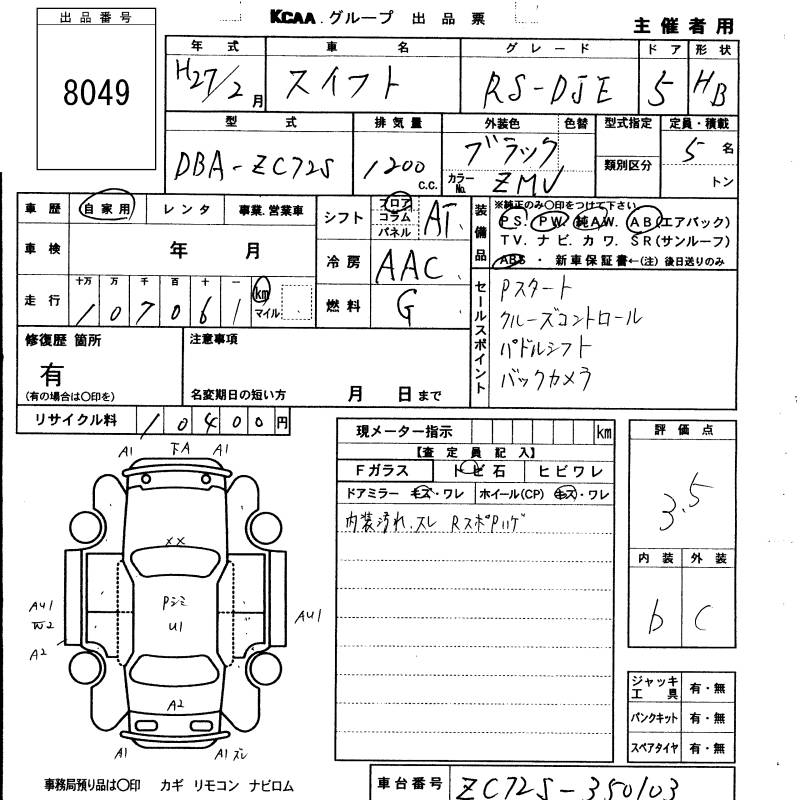 出品番号
8049
KCAA.グループ 出品票
主催者用
年式 車名 グレード ドア 形状
H27/2月 スイフト RS-DJE 5 HB
型式 排気量 外装色 色替 型式指定 定員・積載
DBA-ZC72S 1200 c.c. ブラック カラーNo. ZMV 類別区分 5名 トン
車歴 自家用 レンタ 事業.営業車
シフト フロア コラム パネル AT
装備品
※純正のみ○印をつけて下さい
PS. PW. 純AW. AB(エアバック)
TV. ナビ. カワ. SR(サンルーフ)
ABS ・ 新車保証書←(注) 後日送りのみ
車検 年 月
冷房 AAC
走行 十万 万 千 百 十 一
107061 km マイル
燃料 G
セールスポイント
Pスタート
クルーズコントロール
パドルシフト
バックカメラ
修復歴 箇所
有
(有の場合は○印を)
注意事項
名変期日の短い方 月 日まで
リサイクル料 10400円
現メーター指示 km
【査定員記入】
Fガラス トビ石 ヒビワレ
ドアミラー キズ・ワレ ホイール(CP) キズ・ワレ
内装汚れ.スレ RスポPハゲ
評価点
3.5
内装 外装
b C
ジャッキ工具 有・無
パンクキット 有・無
スペアタイヤ 有・無
A1 下A A1
XX
Pシミ
U1
AU1
W2
A2
AU1
A2
A1 A1 ズレ
事務局預り品は○印 カギ リモコン ナビロム
車台番号 ZC72S-350103